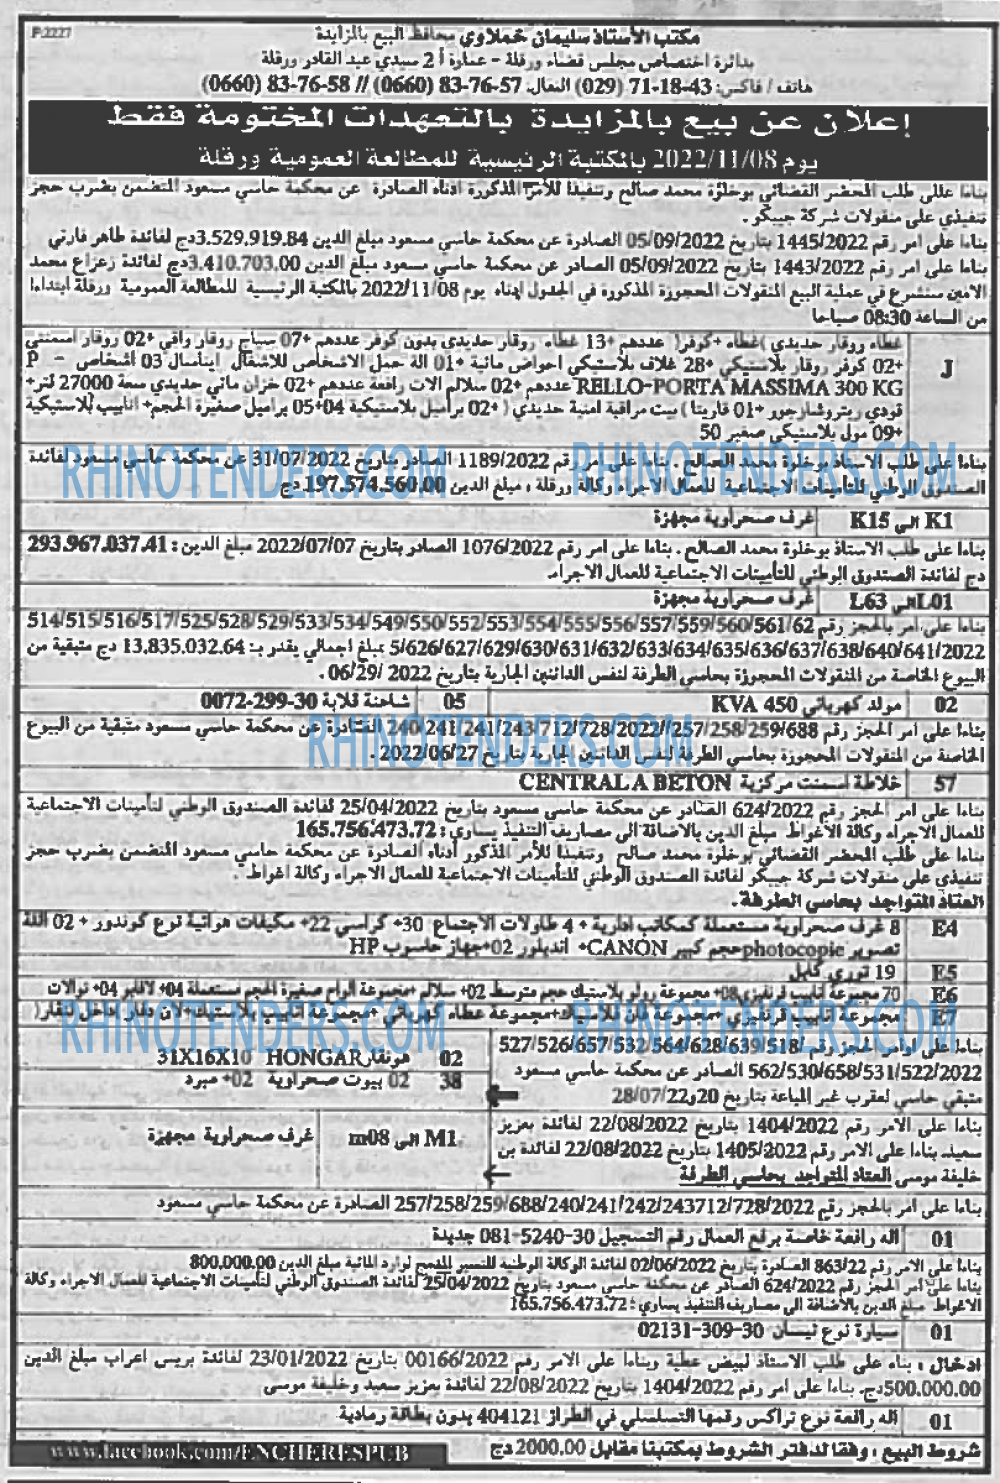 P.2227
مكتب الأستاذ سليمان خملاوي محافظ البيع بالمزايدة
بدائرة اختصاص مجلس قضاء ورقلة - عمارة أ 2 سيدي عبد القادر ورقلة
هاتف / فاكس: 43-18-71 (029) النقال: 57-76-83 (0660) // 58-76-83 (0660)
إعلان عن بيع بالمزايدة بالتعهدات المختومة فقط
يوم 2022/11/08 بالمكتبة الرئيسية للمطالعة العمومية ورقلة
بناءا على طلب المحضر القضائي بوخلوة محمد صالح وتنفيذا للأمر المذكورة ادناه الصادرة عن محكمة حاسي مسعود المتضمن بضرب حجز
تنفيذي على منقولات شركة جيبكر .
بناءا على امر رقم 1445/2022 بتاريخ 05/09/2022 الصادرة عن محكمة حاسي مسعود مبلغ الدين 3.529.919.84دج لفائدة طاهر فارتي
بناءا على امر رقم 1443/2022 بتاريخ 05/09/2022 الصادر عن محكمة حاسي مسعود مبلغ الدين 3.410.703.00دج لفائدة زعزاع محمد
الامين سنشرع في عملية البيع المنقولات المحجوزة المذكورة في الجدول ادناه يوم 2022/11/08 بالمكتبة الرئيسية للمطالعة العمومية ورقلة ابتداءا
من الساعة 08:30 صباحا
J
غطاء روقار حديدي )غطاء +كوفر( عددهم +13 غطاء روقار حديدي بدون كوفر عددهم +07 سياج روقار واقي +02 روقار اسمنتي
+02 كوفر روقار بلاستيكي +28 غلاف بلاستيكي احواض مائية +01 الة حمل الاشخاص للاشغال 03 أشخاص - P
RELLO-PORTA MASSIMA 300 KG عددهم +02 سلالم الات رافعة عددهم +02 خزان مائي حديدي سعة 27000 لتر+
01+ قارينا( بيت مراقبة امنية حديدي (+02 براميل بلاستيكية 04+05 براميل صغيرة الحجم+ انابيب بلاستيكية
+09 مول بلاستيكي صغير 50
بناءا على طلب الاستاذ بوخلوة محمد الصالح . بناءا على امر رقم 1189/2022 الصادر بتاريخ 31/07/2022 عن محكمة حاسي مسعود لفائدة
الصندوق الوطني للتأمينات الاجتماعية للعمال الاجراء وكالة ورقلة ، مبلغ الدين 197.574.560.00 دج
K1 الى K15 غرف صحراوية مجهزة
بناءا على طلب الاستاذ بوخلوة محمد الصالح . بناءا على امر رقم 1076/2022 الصادر بتاريخ 2022/07/07 مبلغ الدين : 293.967.037.41
دج لفائدة الصندوق الوطني للتأمينات الاجتماعية للعمال الاجراء.
L01الى L63 غرف صحراوية مجهزة
بناءا على امر بالحجز رقم 514/515/516/517/525/528/529/533/534/549/550/552/553/554/555/556/557/559/560/561/62
5/626/627/629/630/631/632/633/634/635/636/637/638/640/641/2022 بمبلغ اجمالي يقدر بـ: 13.835.032.64 دج متبقية من
البيوع الخاصة من المنقولات المحجوزة بحاسي الطرفة لنفس الدائنين الجارية بتاريخ 2022 /06/29 .
02 مولد كهربائي 450 KVA 05 شاحنة قلابة 30-299-0072
بناءا على امر الحجز رقم 240/241/241/243-712/728/2022//257/258/259/688 الصادرة عن محكمة حاسي مسعود متبقية من البيوع
الخاصة من المنقولات المحجوزة بحاسي الطرفة لنفس الدائنين الجارية بتاريخ 2022/06/27 .
57 خلاطة اسمنت مركزية CENTRAL A BETON
بناءا على امر الحجز رقم 624/2022 الصادر عن محكمة حاسي مسعود بتاريخ 25/04/2022 لفائدة الصندوق الوطني لتأمينات الاجتماعية
للعمال الاجراء وكالة الاغواط مبلغ الدين بالاضافة الى مصاريف التنفيذ يساوي : 165.756.473.72
بناءا على طلب المحضر القضائي بوخلوة محمد صالح وتنفيذا للأمر المذكور أدناه الصادرة عن محكمة حاسي مسعود المتضمن بضرب حجز
تنفيذي على منقولات شركة جيبكر لفائدة الصندوق الوطني للتأمينات الاجتماعية للعمال الاجراء وكالة اغواط .
العتاد المتواجد بحاسي الطرفة.
E4 8 غرف صحراوية مستعملة كمكاتب ادارية + 4 طاولات الاجتماع 30+ كراسي 22+ مكيفات هوائية نوع كوندور + 02 آلة
تصوير photocopieحجم كبير CANON+ 02+جهاز حاسوب HP
E5 19 توري كابل
E6 70 مجموعة أنابيب قرنفيزي 08+ مجموعة رولو بلاستيك حجم متوسط 02+ سلالم +مجموعة الواح صغيرة الحجم مستعملة 04+ 04+
E7 مجموعة أنابيب قرنفيزي +مجموعة فان بلاستيك+مجموعة غطاء كهربائي +مجموعة أنابيب بلاستيك+
بناءا على اوامر الحجز رقم 527/526/657/532/564/628/639/518/
562/530/658/531/522/2022 الصادر عن محكمة حاسي مسعود
متبقي حاسي لعقرب غير المباعة بتاريخ 20و28/07/22
02 هونقار31X16X10 HONGAR
38 02 بيوت صحراوية 02+ مبرد
بناءا على الامر رقم 1404/2022 بتاريخ 22/08/2022 لفائدة بعزيز
سعيد. بناءا على الامر رقم 1405/2022 بتاريخ 22/08/2022 لفائدة بن
خليفة موسى العتاد المتواجد بحاسي الطرفة
M1 الى m08 غرف صحراوية مجهزة
بناءا على امر بالحجز رقم 257/258/259/688/240/241/242/243712/728/2022 الصادرة عن محكمة حاسي مسعود
01 اله رافعة خاصة برفع العمال رقم التسجيل 30-5240-081 جديدة
بناءا على الامر رقم 863/22 الصادرة بتاريخ 02/06/2022 لفائدة الوكالة الوطنية للتسيير المدمج لوارد المائية مبلغ الدين 800.000.00
بناءا على امر الحجز رقم 624/2022 الصادر عن محكمة حاسي مسعود بتاريخ 25/04/2022 لفائدة الصندوق الوطني لتأمينات الاجتماعية للعمال الاجراء وكالة
الاغواط مبلغ الدين بالاضافة الى مصاريف التنفيذ يساوي : 165.756.473.72
01 سيارة نوع نيسان 30-309-02131
ادخال : بناء على طلب الاستاذ لبيض عطية وبناءا على الامر رقم 00166/2022 بتاريخ 23/01/2022 لفائدة بريس اعراب مبلغ الدين
500.000.00دج. بناءا على امر رقم 1404/2022 بتاريخ 22/08/2022 لفائدة بعزيز سعيد وخليفة موسى
01 اله رافعة نوع تراكس رقمها التسلسلي في الطراز 404121 بدون بطاقة رمادية
شروط البيع : وفقا لدفتر الشروط بمكتبنا مقابل 2000.00 دج
www.facebook.com/ENCHERESPUB
RHINOTENDERS.COM
RHINOTENDERS.COM
RHINOTENDERS.COM
RHINOTENDERS.COM
RHINOTENDERS.COM